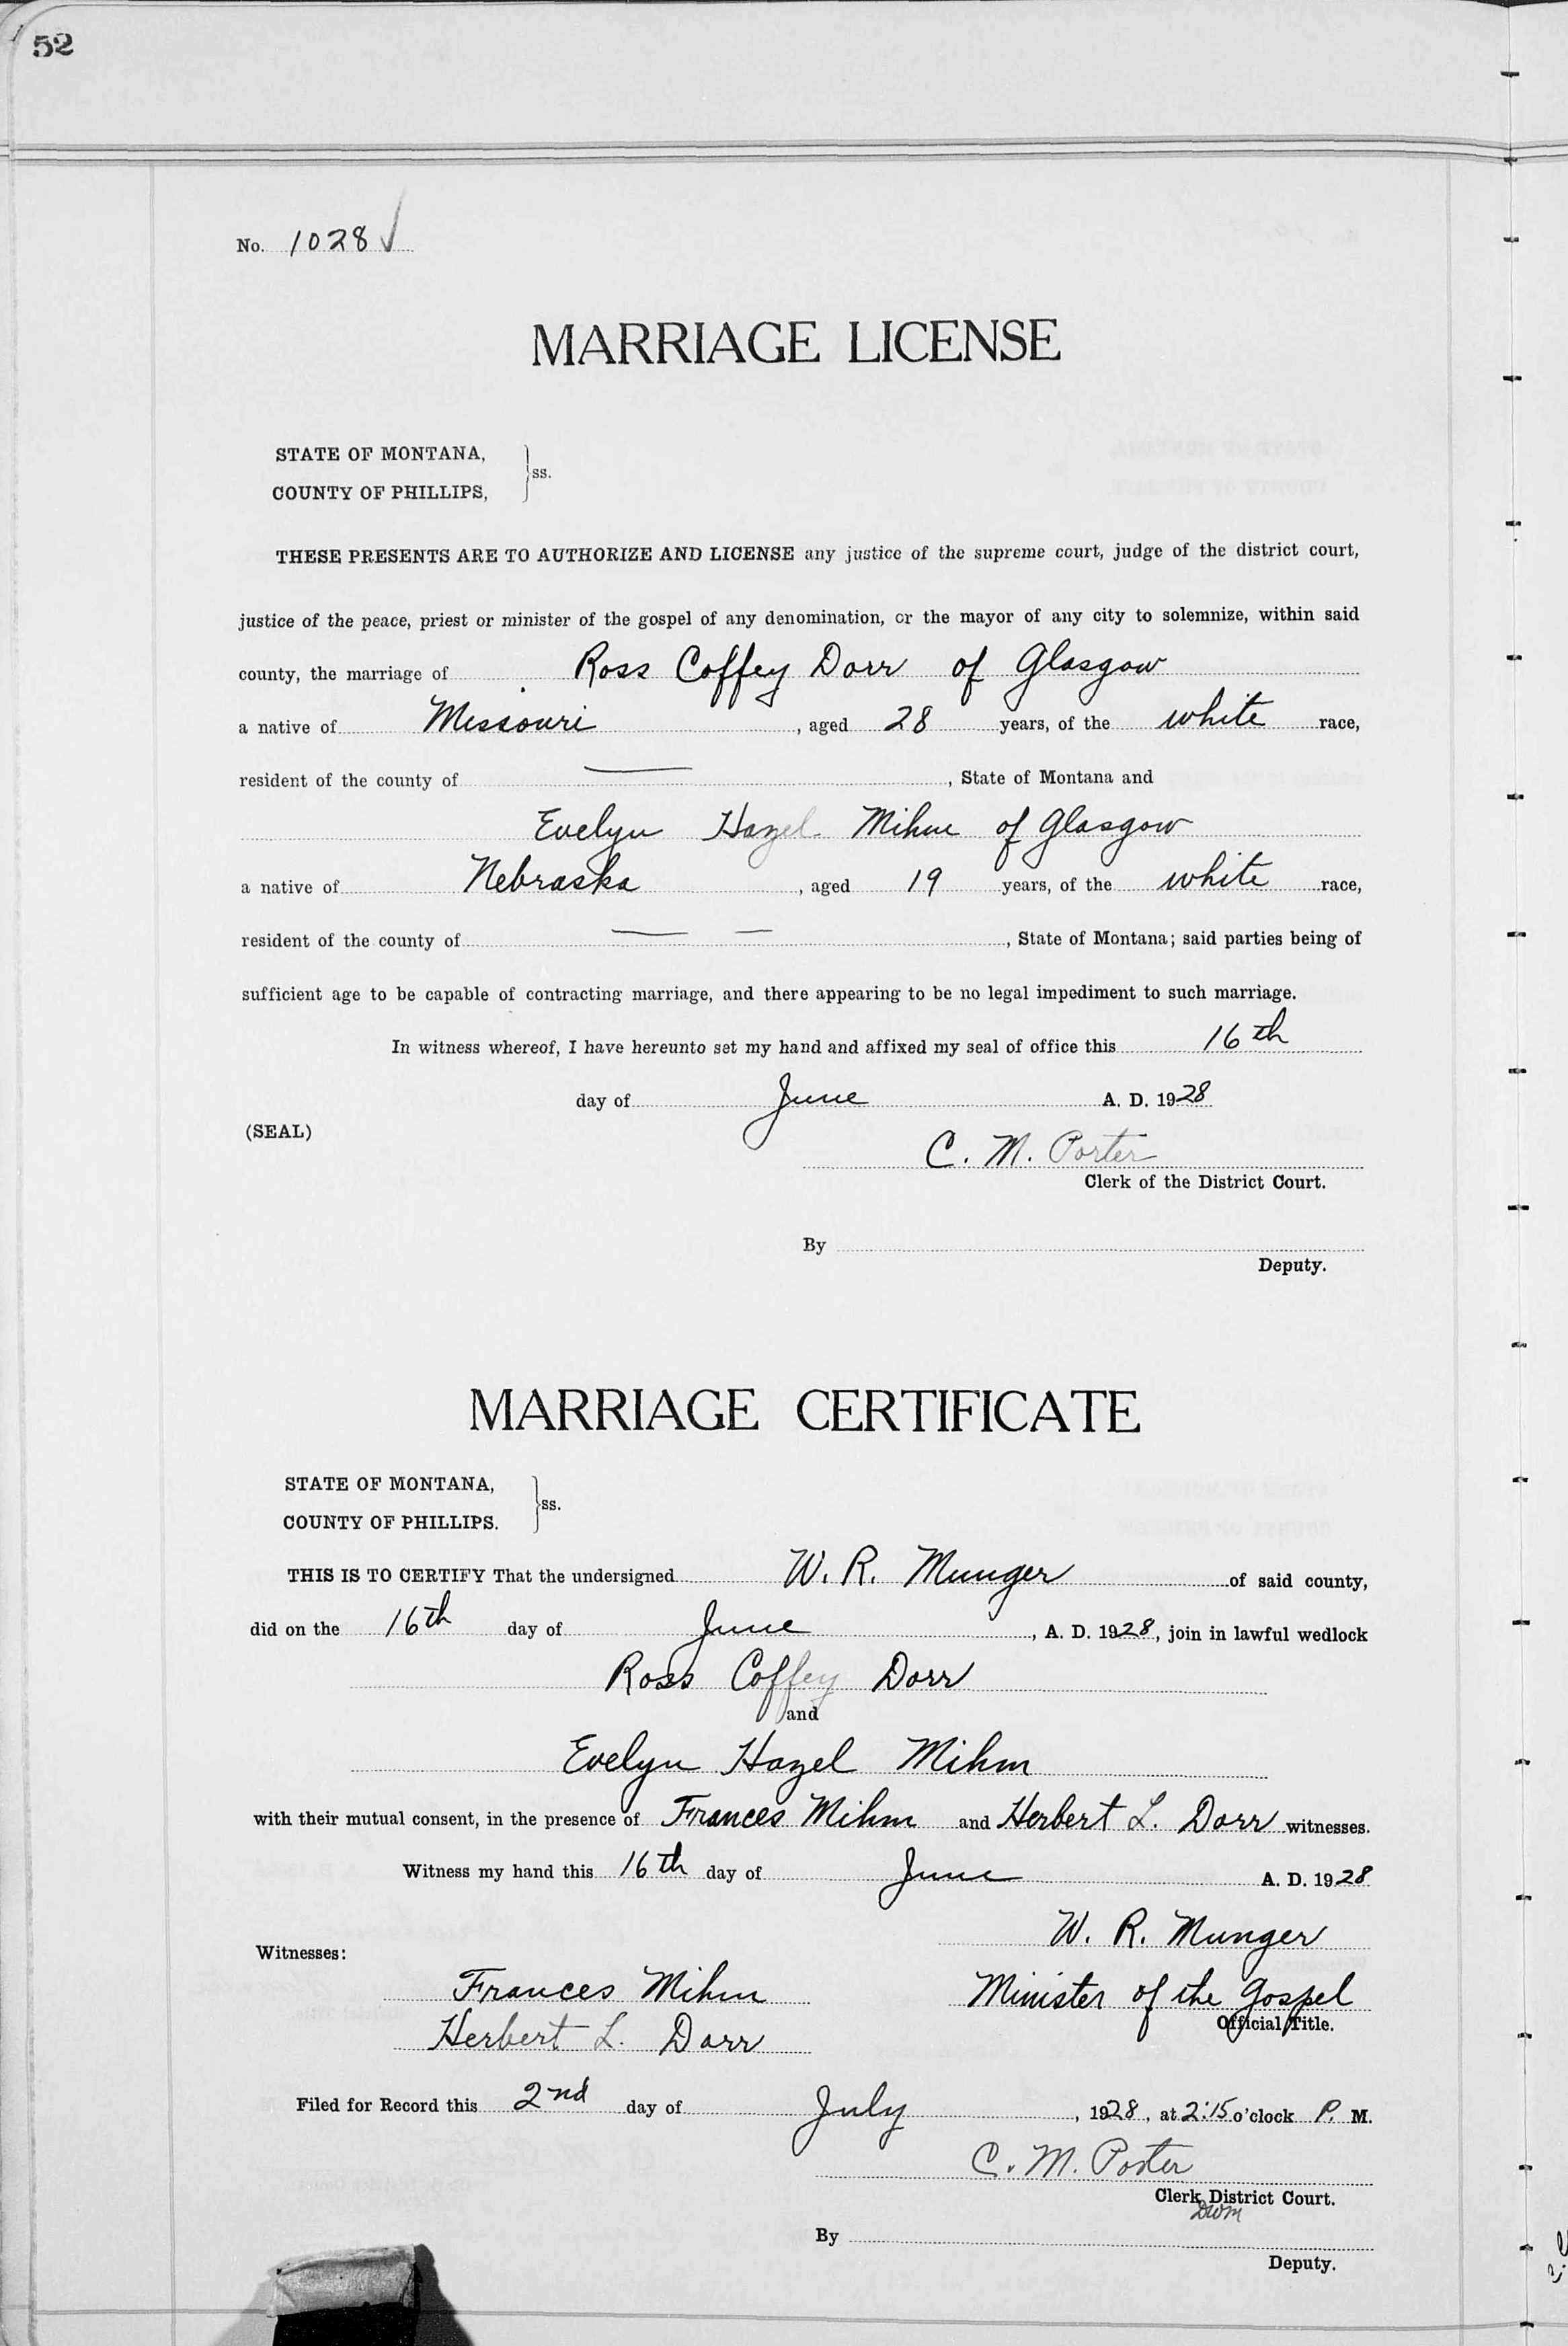 52
No. 1028 ✓
MARRIAGE LICENSE
STATE OF MONTANA,
COUNTY OF PHILLIPS, } ss.
THESE PRESENTS ARE TO AUTHORIZE AND LICENSE any justice of the supreme court, judge of the district court,
justice of the peace, priest or minister of the gospel of any denomination, or the mayor of any city to solemnize, within said
county, the marriage of Ross Coffey Dorr of Glasgow
a native of Missouri, aged 28 years, of the white race,
resident of the county of —, State of Montana and
Evelyn Hazel Mihm of Glasgow
a native of Nebraska, aged 19 years, of the white race,
resident of the county of — —, State of Montana; said parties being of
sufficient age to be capable of contracting marriage, and there appearing to be no legal impediment to such marriage.
In witness whereof, I have hereunto set my hand and affixed my seal of office this 16th
day of June A. D. 1928
(SEAL)
C. M. Porter
Clerk of the District Court.
By
Deputy.
MARRIAGE CERTIFICATE
STATE OF MONTANA,
COUNTY OF PHILLIPS. } ss.
THIS IS TO CERTIFY That the undersigned W. R. Munger of said county,
did on the 16th day of June, A. D. 1928, join in lawful wedlock
Ross Coffey Dorr
and
Evelyn Hazel Mihm
with their mutual consent, in the presence of Frances Mihm and Herbert L. Dorr witnesses.
Witness my hand this 16th day of June A. D. 1928
W. R. Munger
Witnesses:
Frances Mihm Minister of the Gospel
Herbert L. Dorr Official Title.
Filed for Record this 2nd day of July, 1928, at 2:15 o'clock P. M.
C. M. Porter
Clerk District Court.
DWM
By
Deputy.